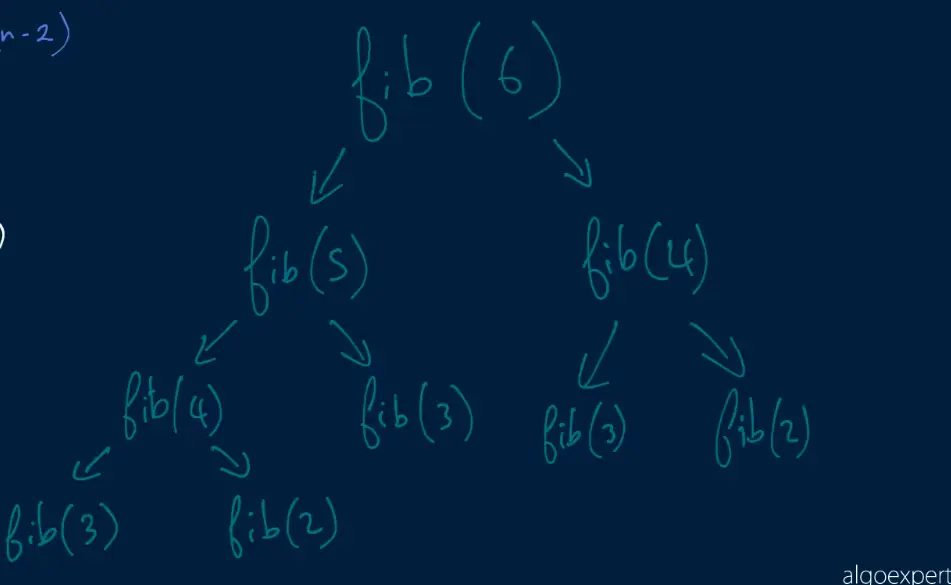 n-2)
fib(6)
)
fib(5) fib(4)
fib(4) fib(3) fib(3) fib(2)
fib(3) fib(2)
algoexpert